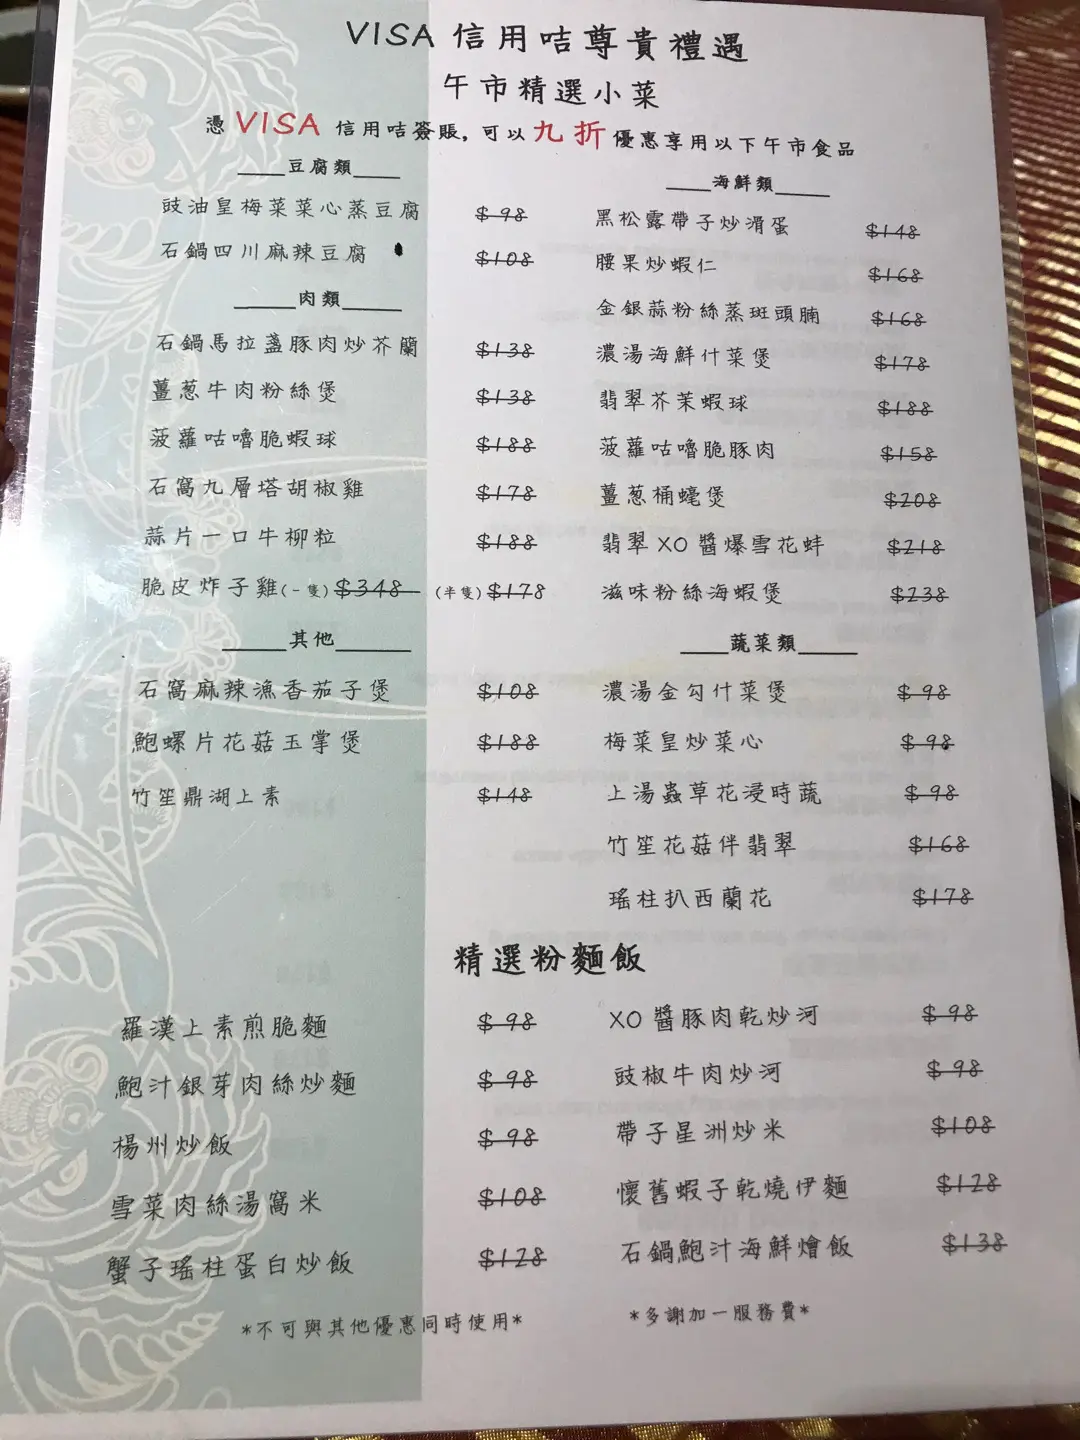 VISA 信用咭尊貴禮遇
午市精選小菜
憑 VISA 信用咭簽賬, 可以九折優惠享用以下午市食品
豆腐類
豉油皇梅菜菜心蒸豆腐 $98
石鍋四川麻辣豆腐 $108
肉類
石鍋馬拉盞豚肉炒芥蘭 $138
薑葱牛肉粉絲煲 $138
菠蘿咕嚕脆蝦球 $188
石窩九層塔胡椒雞 $178
蒜片一口牛柳粒 $188
脆皮炸子雞(一隻)$348 (半隻)$178
其他
石窩麻辣漁香茄子煲 $108
鮑螺片花菇玉掌煲 $188
竹笙鼎湖上素 $148
海鮮類
黑松露帶子炒滑蛋 $148
腰果炒蝦仁 $168
金銀蒜粉絲蒸斑頭腩 $168
濃湯海鮮什菜煲 $178
翡翠芥茉蝦球 $188
菠蘿咕嚕脆豚肉 $158
薑葱桶蠔煲 $208
翡翠 XO 醬爆雪花蚌 $218
滋味粉絲海蝦煲 $238
蔬菜類
濃湯金勾什菜煲 $98
梅菜皇炒菜心 $98
上湯蟲草花浸時蔬 $98
竹笙花菇伴翡翠 $168
瑤柱扒西蘭花 $178
精選粉麵飯
羅漢上素煎脆麵 $98
鮑汁銀芽肉絲炒麵 $98
楊州炒飯 $98
雪菜肉絲湯窩米 $108
蟹子瑤柱蛋白炒飯 $128
XO 醬豚肉乾炒河 $98
豉椒牛肉炒河 $98
帶子星洲炒米 $108
懷舊蝦子乾燒伊麵 $128
石鍋鮑汁海鮮燴飯 $138
*不可與其他優惠同時使用*
*多謝加一服務費*